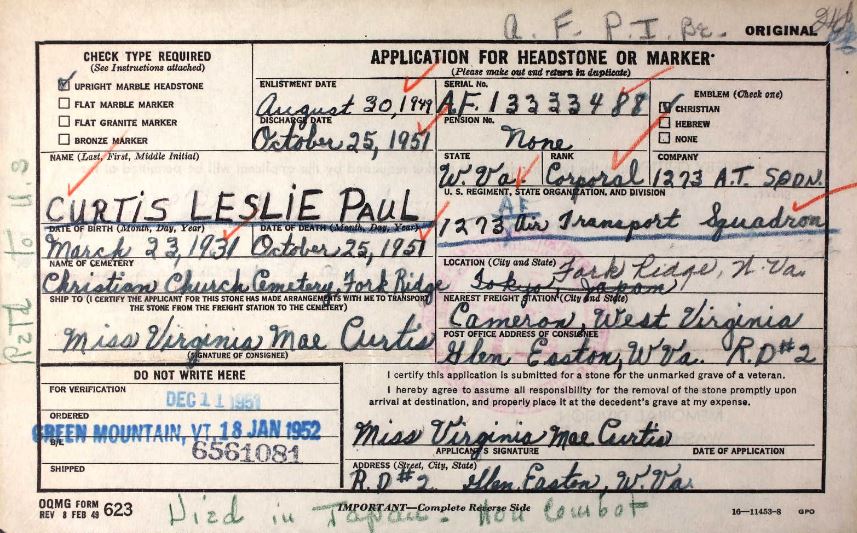 A. F. P. I. Br.
ORIGINAL
CHECK TYPE REQUIRED
(See Instructions attached)
UPRIGHT MARBLE HEADSTONE
FLAT MARBLE MARKER
FLAT GRANITE MARKER
BRONZE MARKER
APPLICATION FOR HEADSTONE OR MARKER
(Please make out and return in duplicate)
ENLISTMENT DATE
August 30, 1949
DISCHARGE DATE
October 25, 1951
SERIAL No.
A.F. 13333488
PENSION No.
None
EMBLEM (Check one)
CHRISTIAN
HEBREW
NONE
NAME (Last, First, Middle Initial)
CURTIS LESLIE PAUL
STATE
W. Va.
RANK
Corporal
COMPANY
1273 A.T. SQDN.
U. S. REGIMENT, STATE ORGANIZATION, AND DIVISION
AF
1273 Air Transport Squadron
DATE OF BIRTH (Month, Day, Year)
March 23, 1931
DATE OF DEATH (Month, Day, Year)
October 25, 1951
NAME OF CEMETERY
Christian Church Cemetery, Fork Ridge
LOCATION (City and State)
Fork Ridge, W. Va.
Tokyo, Japan
SHIP TO (I CERTIFY THE APPLICANT FOR THIS STONE HAS MADE ARRANGEMENTS WITH ME TO TRANSPORT
THE STONE FROM THE FREIGHT STATION TO THE CEMETERY)
Miss Virginia Mae Curtis
(SIGNATURE OF CONSIGNEE)
NEAREST FREIGHT STATION (City and State)
Cameron, West Virginia
POST OFFICE ADDRESS OF CONSIGNEE
Glen Easton, W. Va. R.D #2
DO NOT WRITE HERE
FOR VERIFICATION
DEC 11 1951
ORDERED
GREEN MOUNTAIN, VT. 18 JAN 1952
B/L
6561081
SHIPPED
I certify this application is submitted for a stone for the unmarked grave of a veteran.
I hereby agree to assume all responsibility for the removal of the stone promptly upon
arrival at destination, and properly place it at the decedent's grave at my expense.
Miss Virginia Mae Curtis
APPLICANT'S SIGNATURE
DATE OF APPLICATION
ADDRESS (Street, City, State)
R.D #2 Glen Easton, W. Va.
OQMG FORM
REV 8 FEB 49 623
IMPORTANT—Complete Reverse Side
16—11453-8 GPO
Died in Japan - Non Combat
Retd to U.S